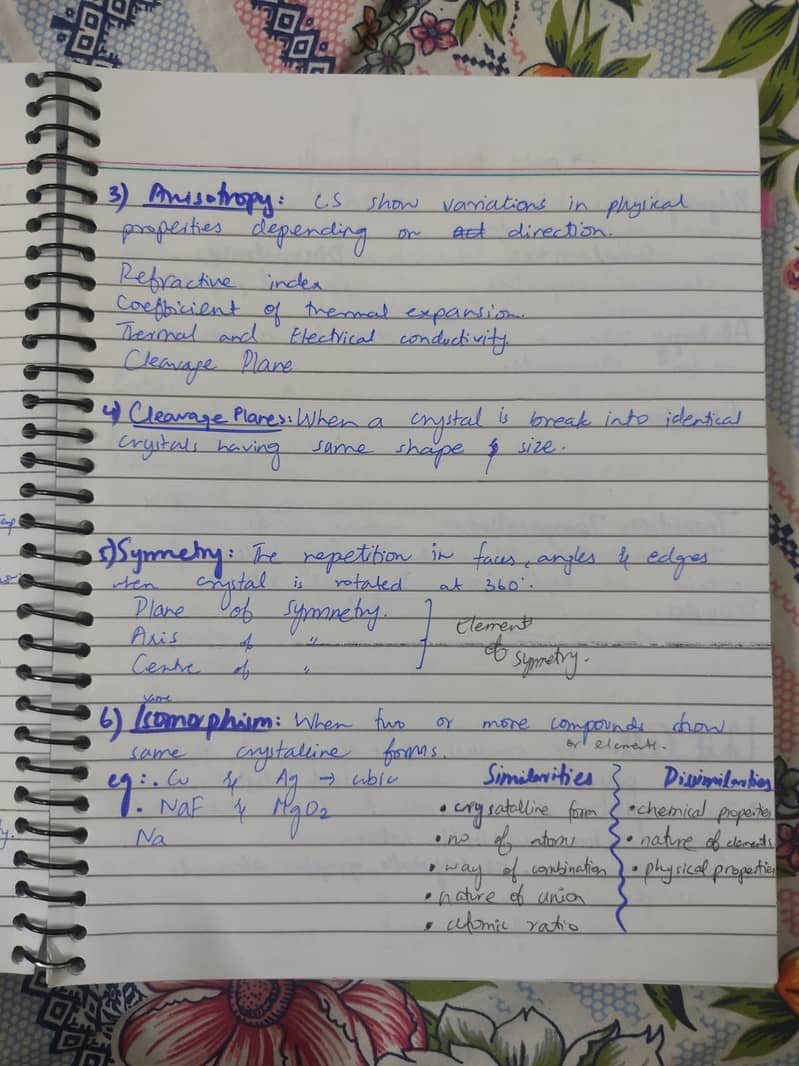 3) Anisotropy: CS show variations in physical
properties depending on direction.
Refractive index
Coefficient of thermal expansion.
Thermal and Electrical conductivity
Cleavage Plane
4) Cleavage Planes: When a crystal is break into identical
crystals having same shape & size.
5) Symmetry: The repetition in faces, angles & edges
when crystal is rotated at 360°.
Plane of symmetry.
Axis of "
Centre of "
Elements
of symmetry.
same
6) Isomorphism: When two or more compounds show
or elements.
same crystalline forms.
eg:. Cu & Ag → cubic
. NaF & MgO2
Na
Similarities
• crysatalline form
• no of atoms
• way of combination
• nature of union
• atomic ratio
Dissimilarities
• chemical properties
• nature of elements
• physical properties